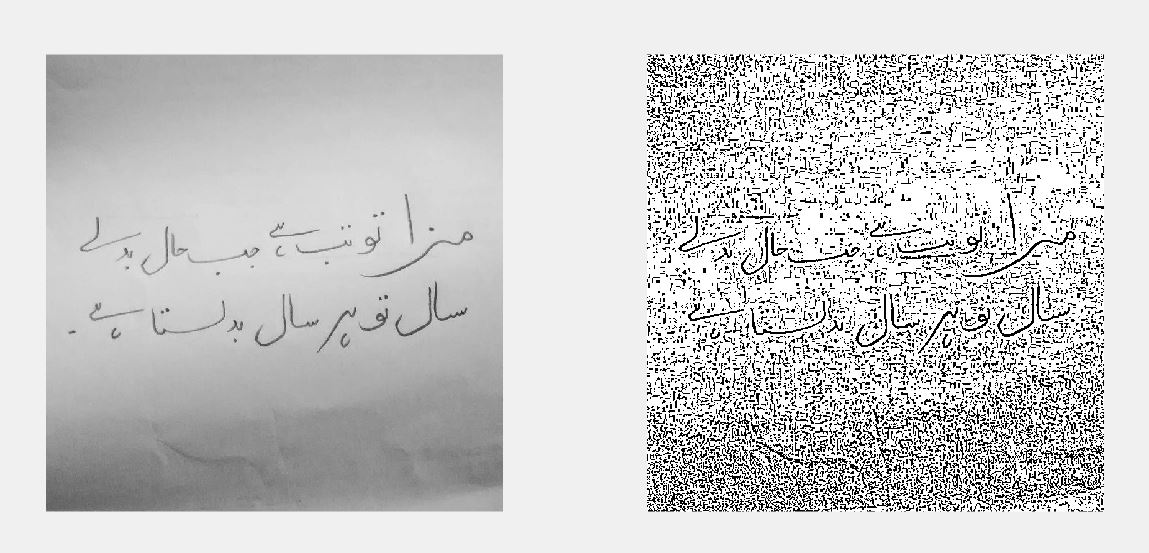 مزا تو تب ہے جب حال بدلے
سال تو ہر سال بدلتا ہے۔
مزا تو تب ہے جب حال بدلے
سال تو ہر سال بدلتا ہے